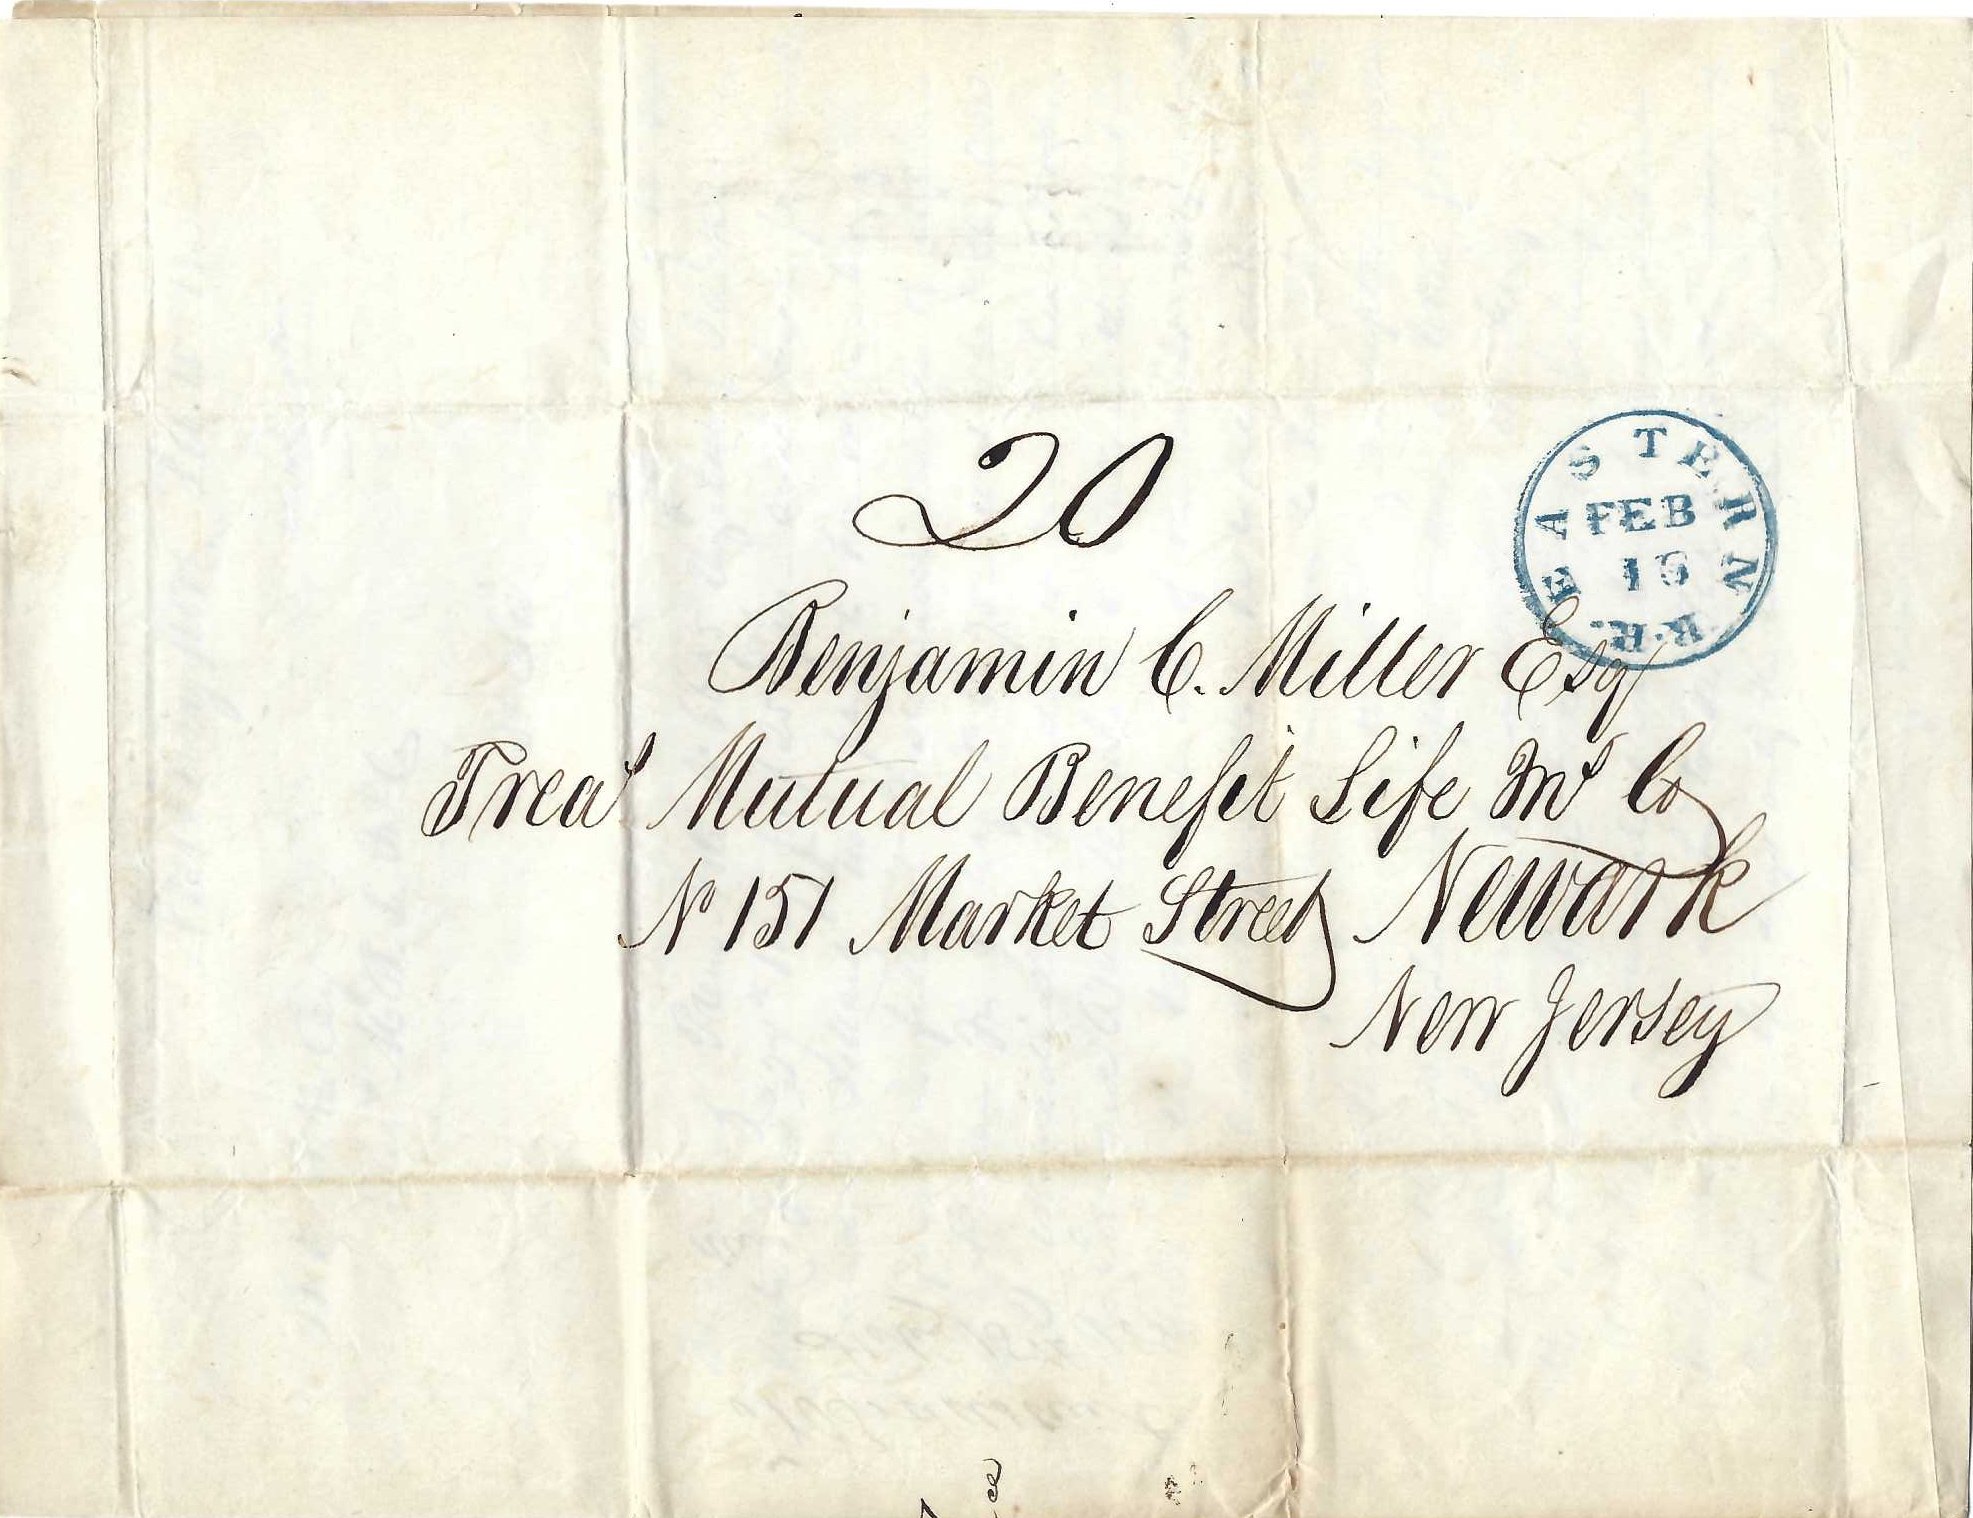 20
EASTERN R.R.
FEB
Benjamin C. Miller Esq
Treas Mutual Benefit Life Ins Co
No 151 Market Street Newark
New Jersey